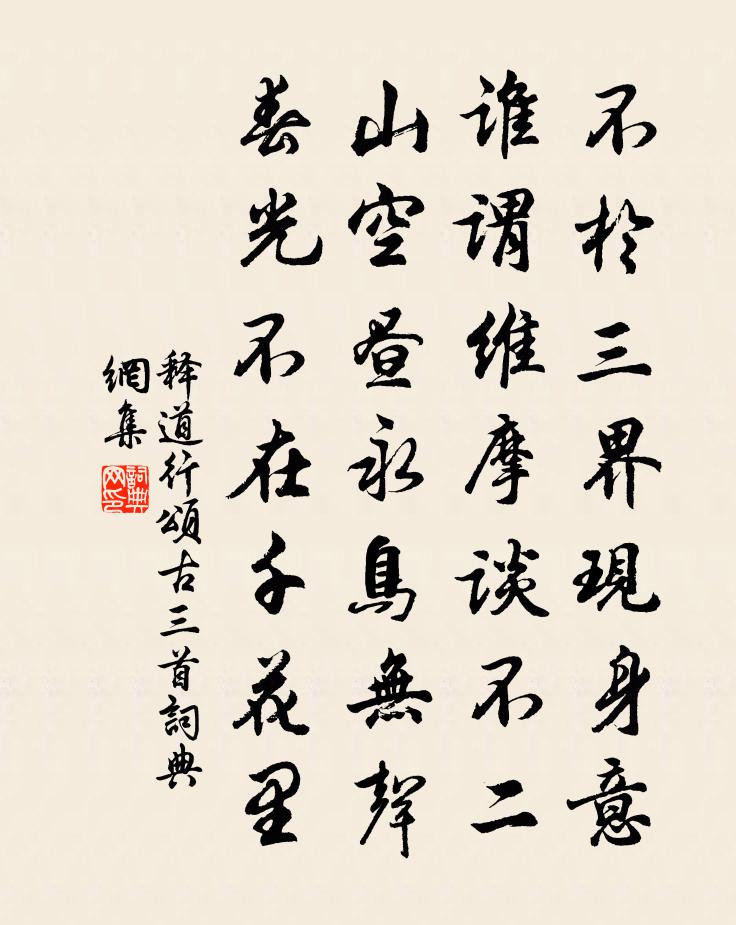 不於三界現身意
誰謂維摩談不二
山空晝永鳥無聲
春光不在千花里
释道行頌古三首詞典
網集
詞典
网印